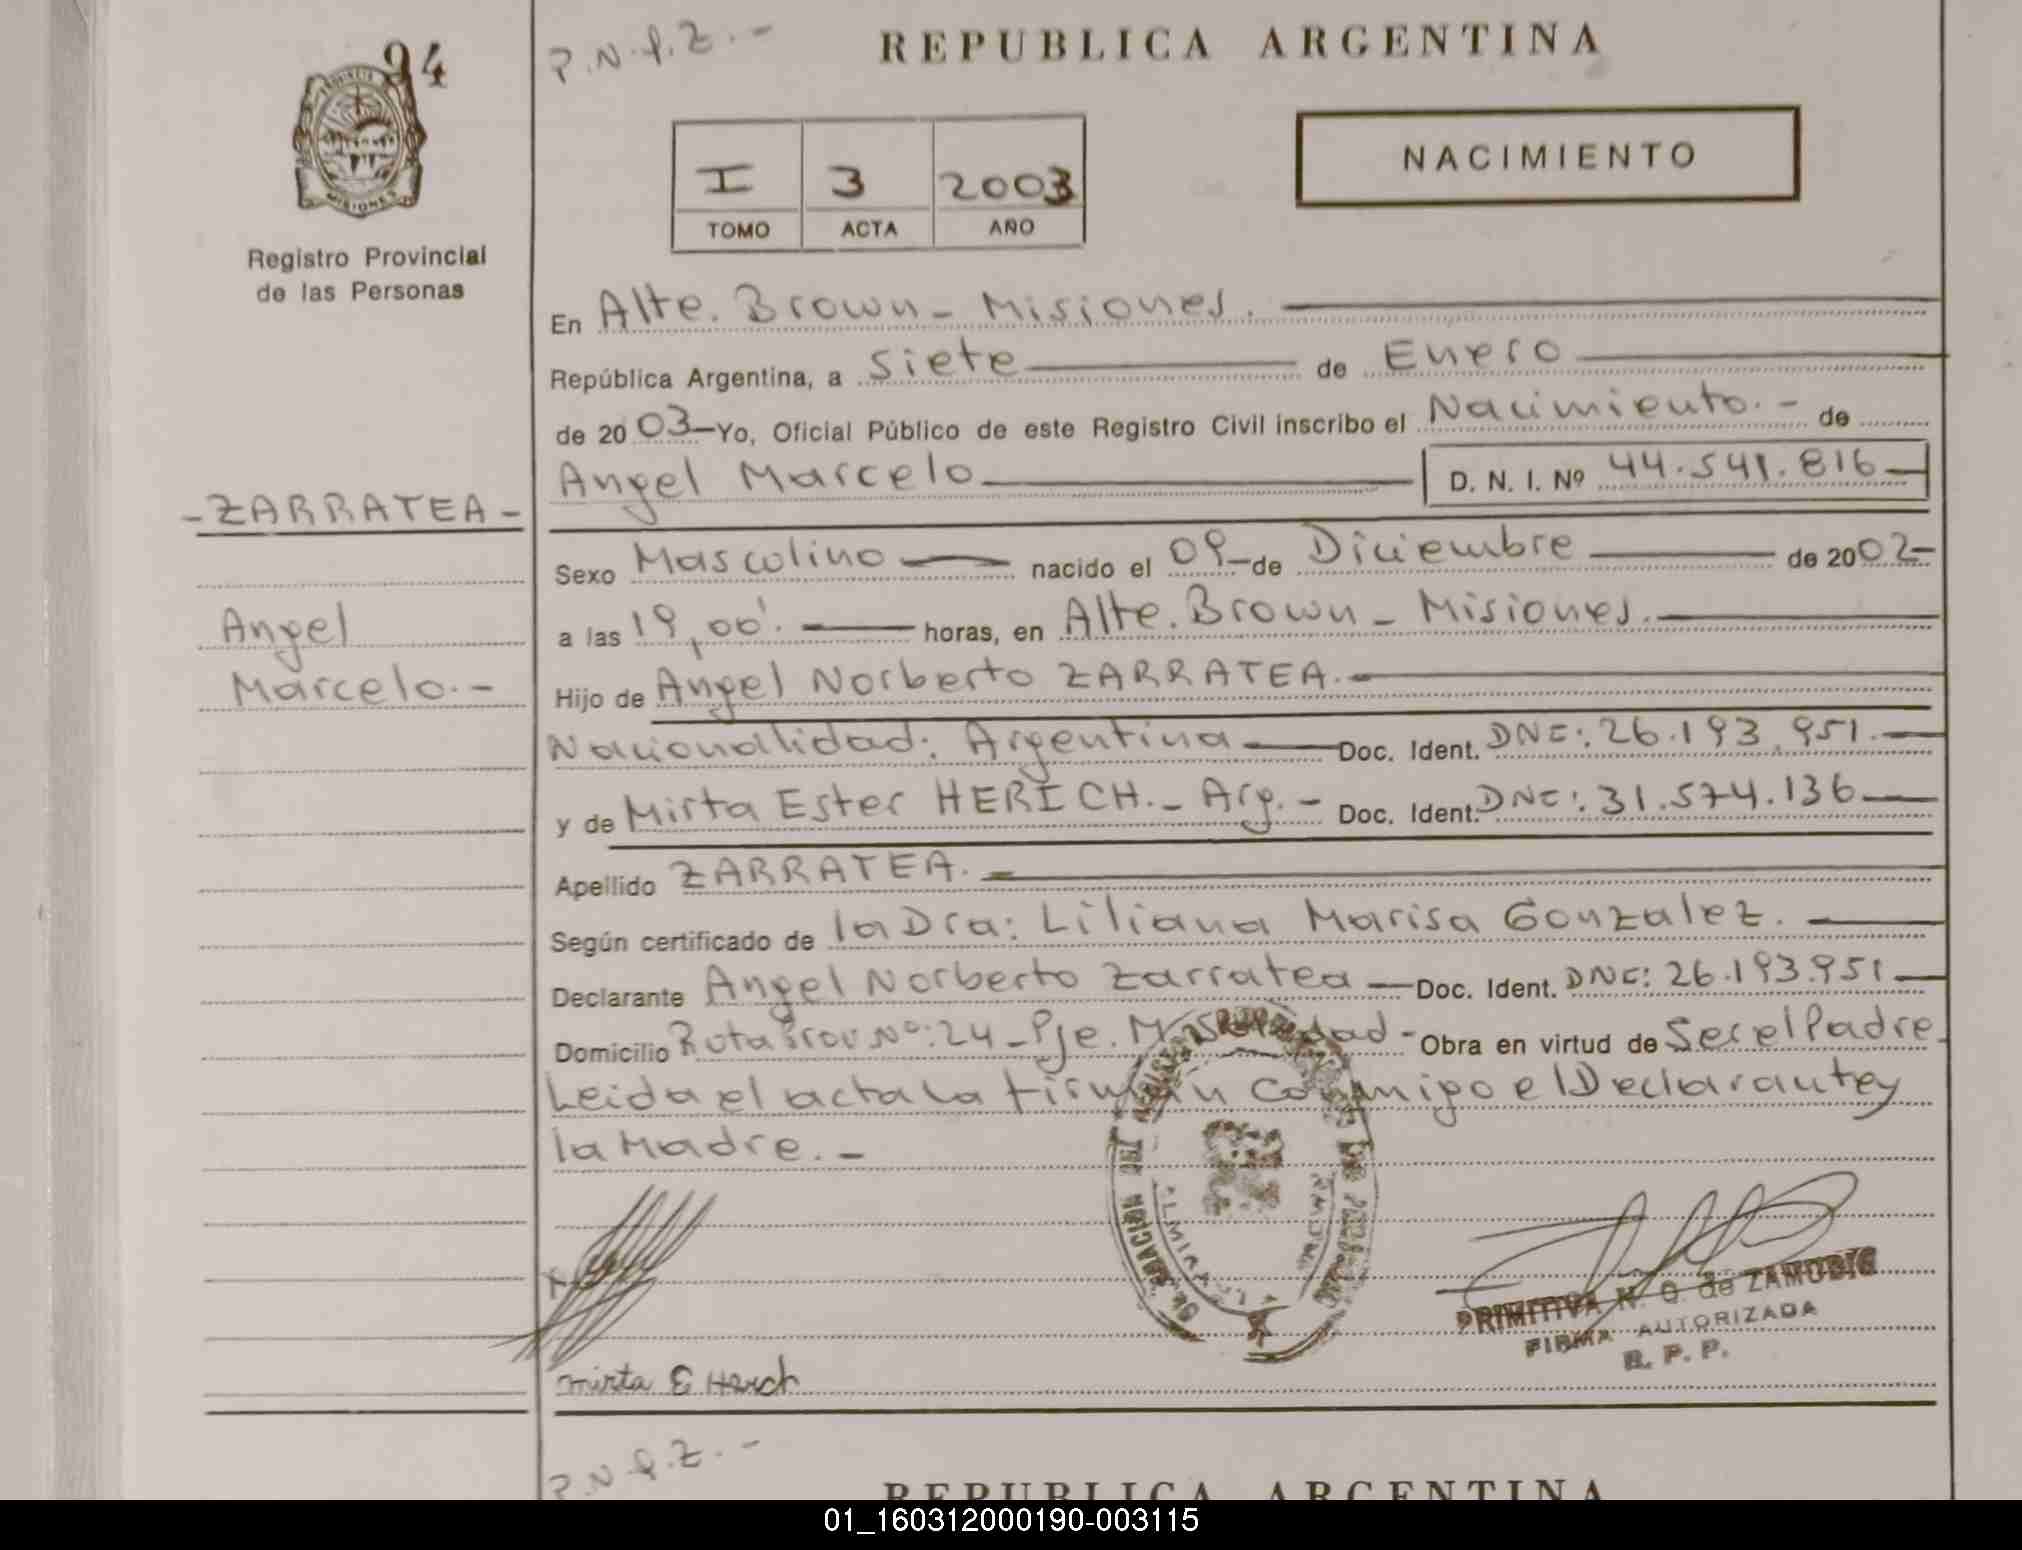 94
P.N.Q.Z.-
REPUBLICA ARGENTINA
MISIONES
Registro Provincial
de las Personas
I 3 2003
TOMO ACTA AÑO
NACIMIENTO
En Alte. Brown - Misiones.
República Argentina, a siete de Enero
de 2003 Yo, Oficial Público de este Registro Civil inscribo el Nacimiento.- de
Angel Marcelo D. N. I. Nº 44.541.816
- ZARRATEA -
Sexo Mascolino nacido el 09 de Diciembre de 2002-
Angel
a las 19,00'. horas, en Alte. Brown - Misiones.
Marcelo.-
Hijo de Angel Norberto ZARRATEA.-
Nacionalidad: Argentina Doc. Ident. DNI: 26.193.951.
y de Mirta Ester HERICH.- Arg.- Doc. Ident. DNI: 31.574.136
Apellido ZARRATEA.
Según certificado de la Dra: Liliana Marisa Gonzalez.
Declarante Angel Norberto Zarratea Doc. Ident. DNI: 26.193.951
Domicilio Ruta Prov Nº: 24 - Pje. - Obra en virtud de Ser el Padre.
Leida el acta la firman conmigo el Declarante y
la Madre.-
PRIMITIVA N. Q. de ZAMUDIO
FIRMA AUTORIZADA
R. P. P.
Mirta E Herich
P.N.Q.Z.-
REPUBLICA ARGENTINA
01_160312000190-003115